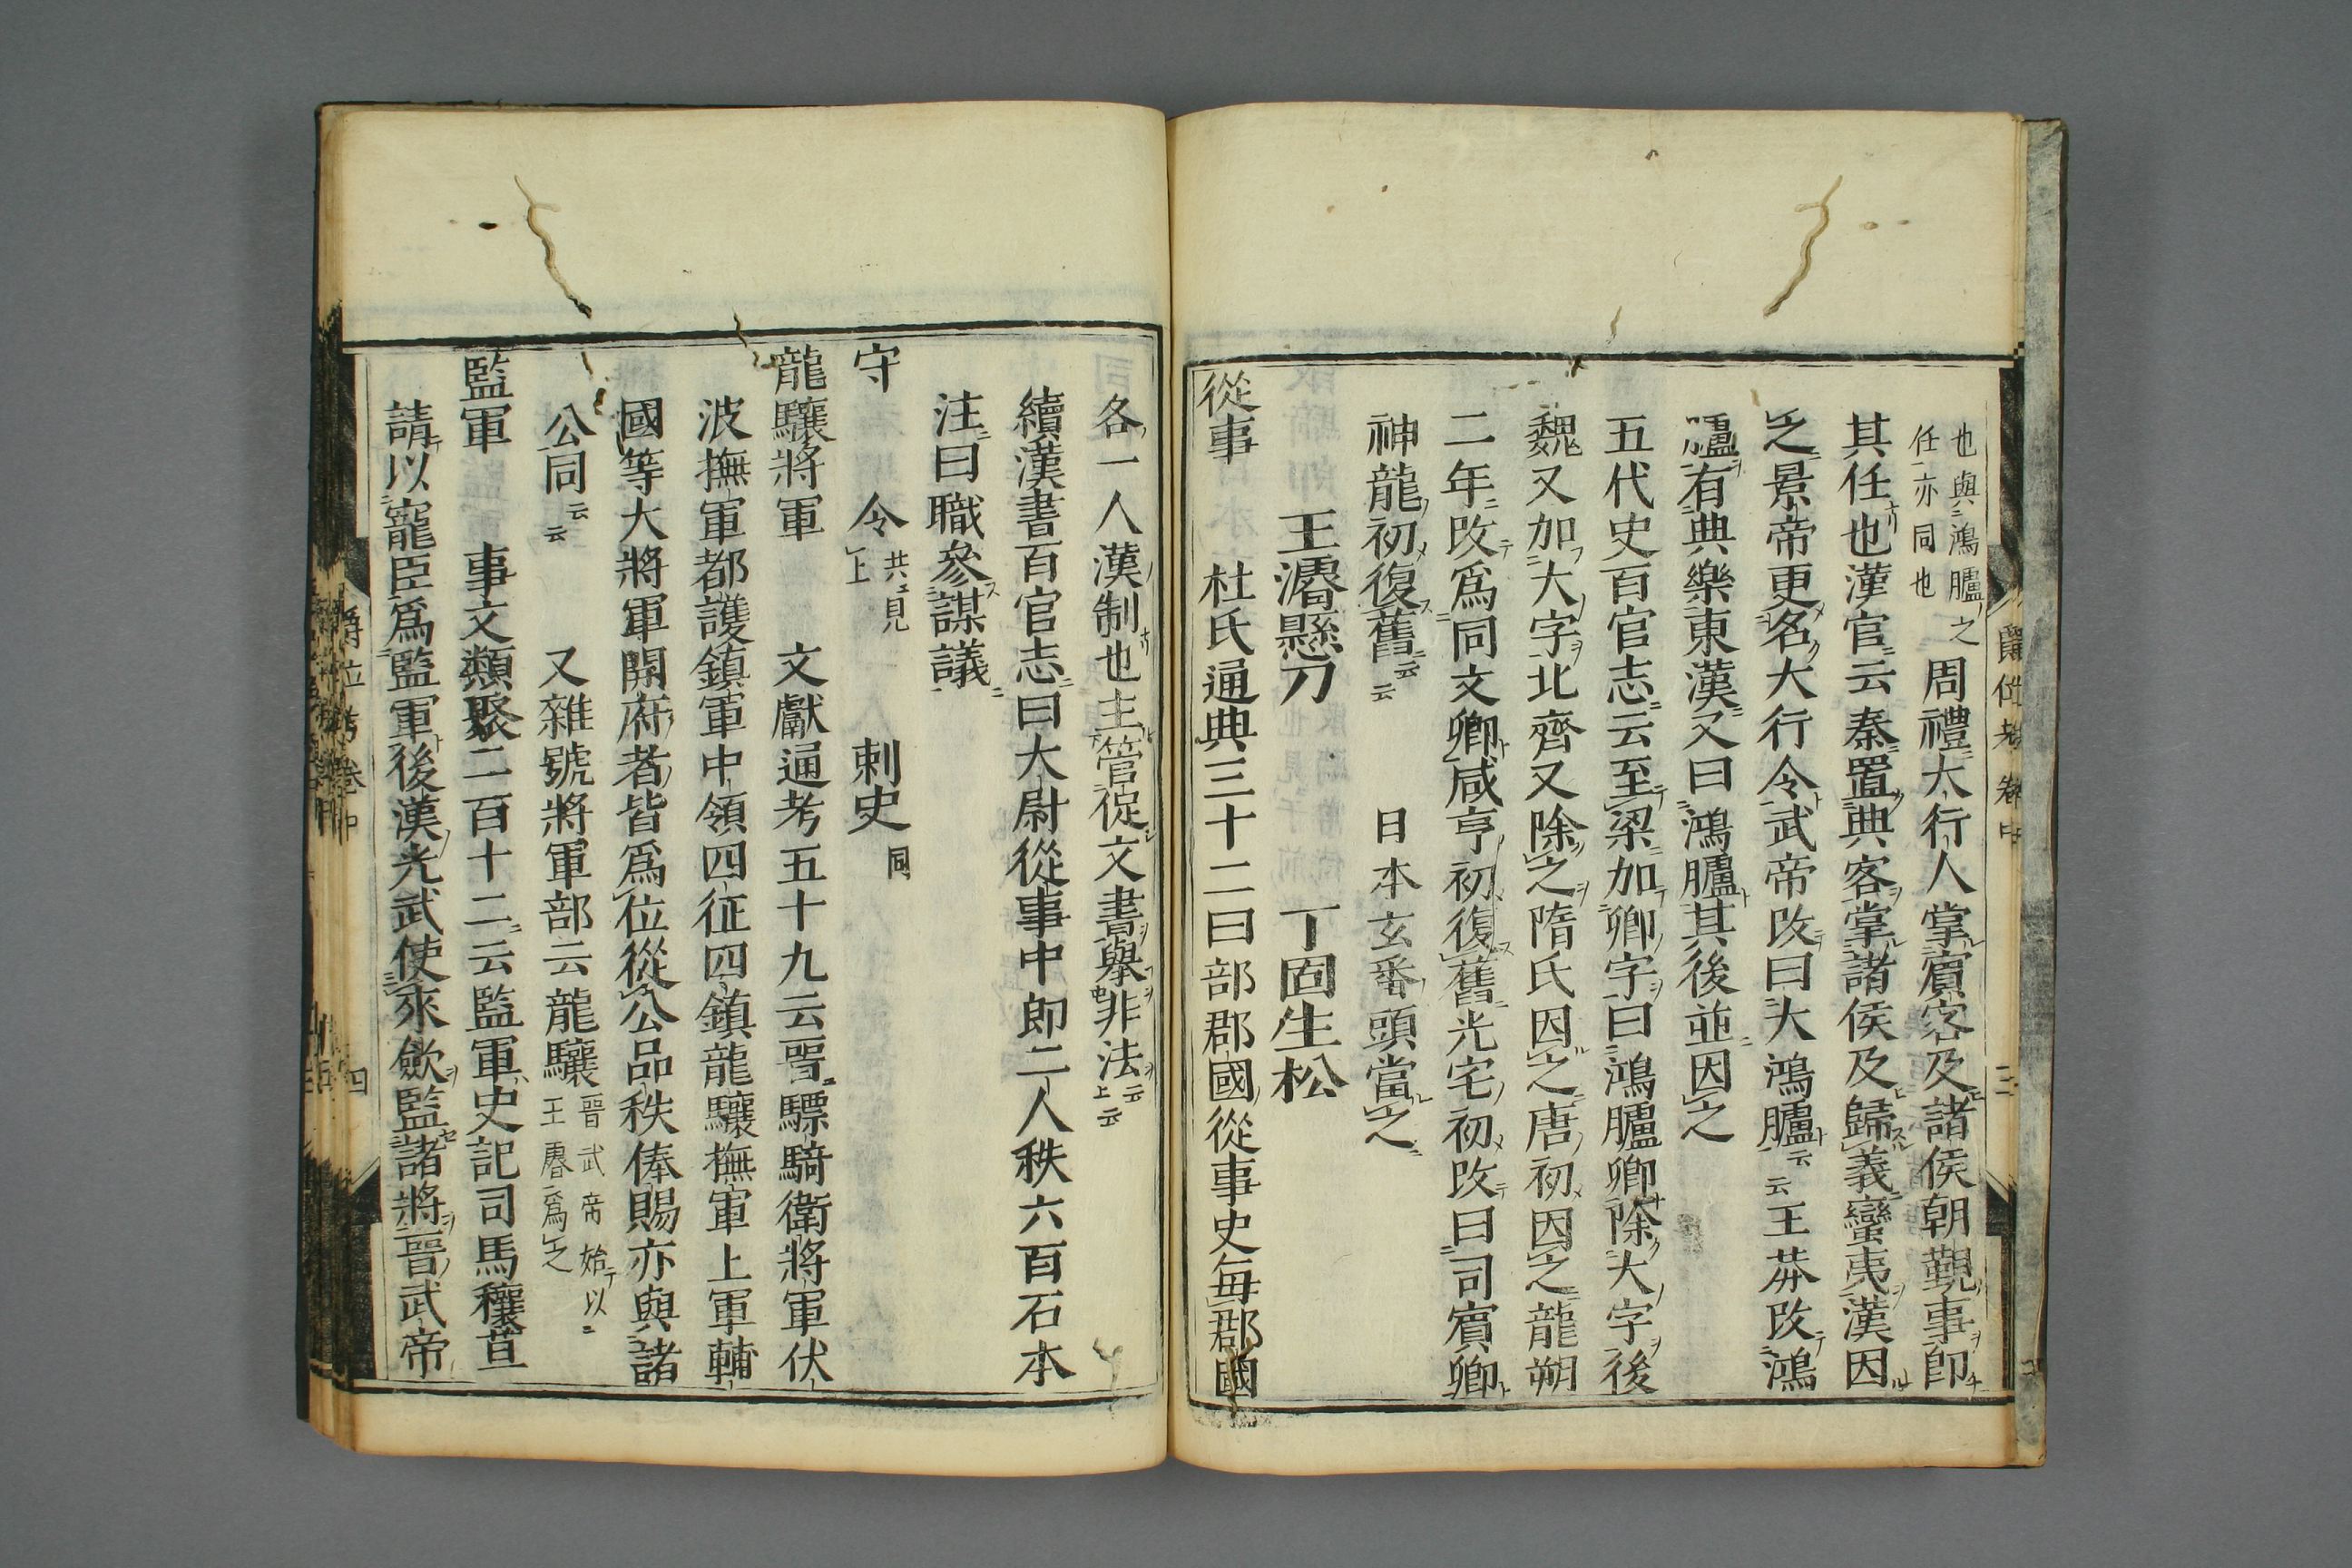 也與鴻臚之
任亦同也
周禮大行人掌賓客及諸侯朝覲事即
其任也漢官云秦置典客掌諸侯及歸義蠻夷漢因
之景帝更名大行令武帝改曰大鴻臚云云王莽改鴻
臚有典樂東漢又曰鴻臚其後並因之
五代史百官志云至梁加卿字曰鴻臚卿除大字後
魏又加大字北齊又除之隋氏因之唐初因之龍朔
二年改為同文卿咸亨初復舊光宅初改曰司賓卿
神龍初復舊云云 日本玄番頭當之
王濬懸刀 丁固生松
從事 杜氏通典三十二曰部郡國從事史每郡國
爵位考 卷中
各一人漢制也主管從文書舉非法云云上
續漢書百官志曰大尉從事中郎二人秩六百石本
注曰職參謀議
守 令共見上 刺史同
龍驤將軍 文獻通考五十九云晋驃騎衛將軍伏
波撫軍都護鎮軍中領四征四鎮龍驤撫軍上軍輔
國等大將軍開府者皆為位從公品秩俸賜亦與諸
公同云云 又雜號將軍部云龍驤晋武帝始以王濬為之
監軍 事文類聚二百十二云監軍史記司馬穰苴
請以寵臣為監軍後漢光武使來歙監諸將晋武帝
爵位考 卷中 四